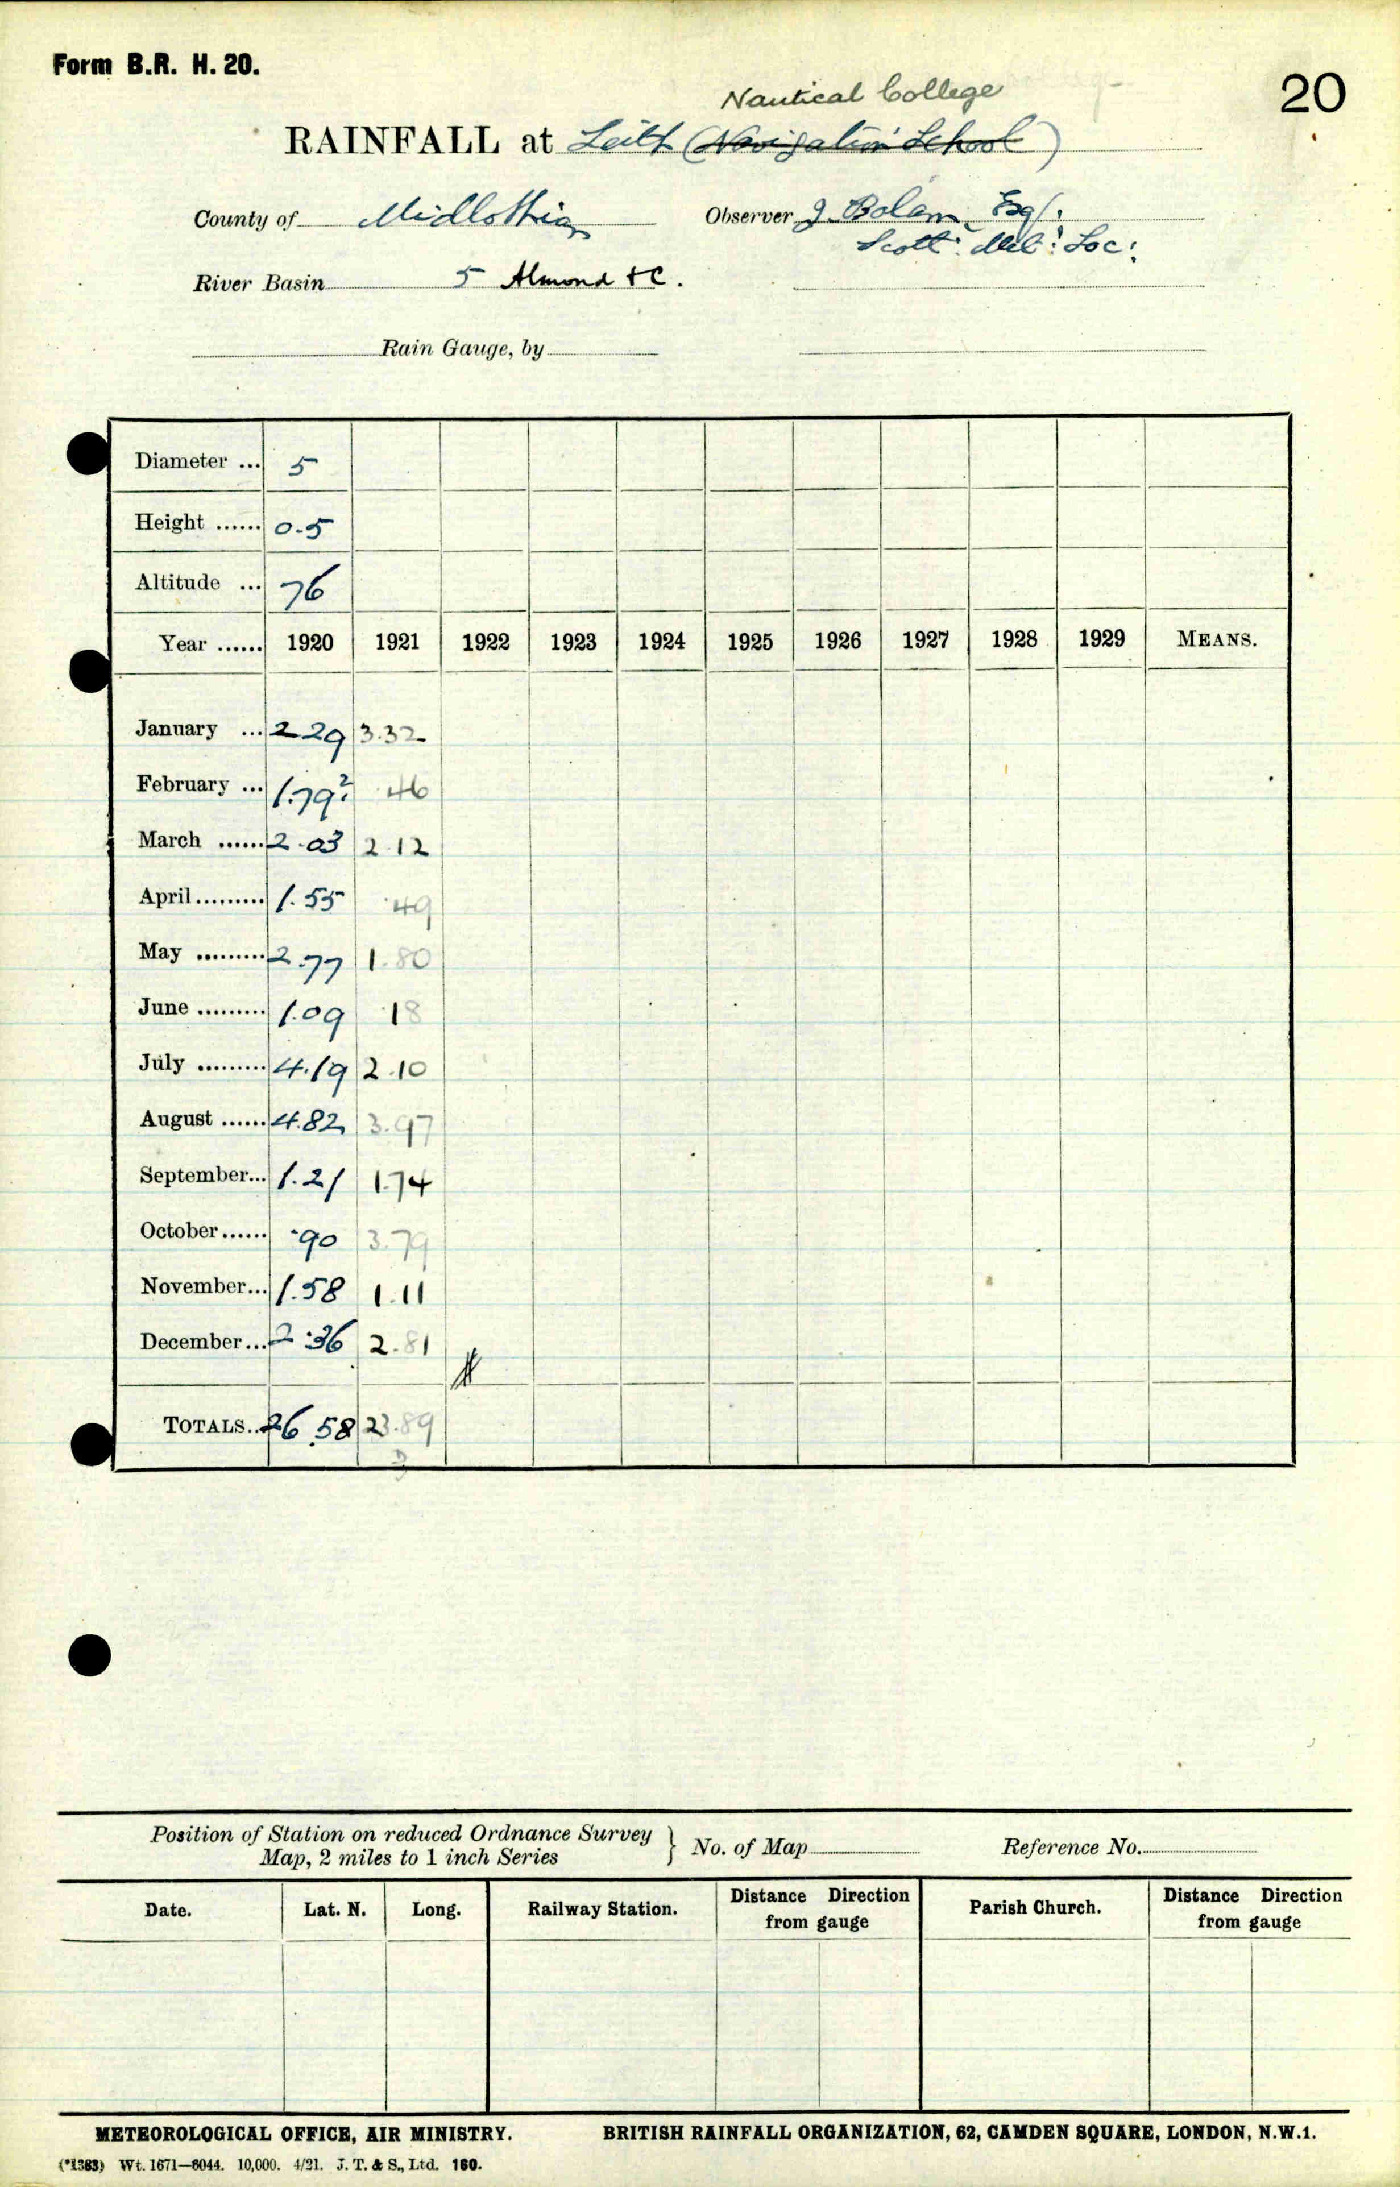 Form B.R. H. 20.
20
Nautical College
RAINFALL at Leith (Navigation School)
County of Midlothian Observer J. Bolam Esq.
Scott: Met: Soc:
River Basin 5 Almond &C.
Rain Gauge, by
Diameter ... 5
Height ...... 0.5
Altitude ... 76
Year ...... 1920 1921 1922 1923 1924 1925 1926 1927 1928 1929 MEANS.
January ... 2 29 3.32
February ... 1.79? .46
March ...... 2.03 2.12
April ......... 1.55 .49
May ......... 2.77 1.80
June ......... 1.09 18
July ......... 4.19 2.10
August ...... 4.82 3.97
September... 1.21 1.74
October...... .90 3.79
November... 1.58 1.11
December... 2.36 2.81
TOTALS.. 26.58 23.89
3
Position of Station on reduced Ordnance Survey
Map, 2 miles to 1 inch Series } No. of Map Reference No.
Date. Lat. N. Long. Railway Station. Distance Direction from gauge Parish Church. Distance Direction from gauge
METEOROLOGICAL OFFICE, AIR MINISTRY. BRITISH RAINFALL ORGANIZATION, 62, CAMDEN SQUARE, LONDON, N.W.1.
(*1383) Wt. 1671—8044. 10,000. 4/21. J. T. & S., Ltd. 160.